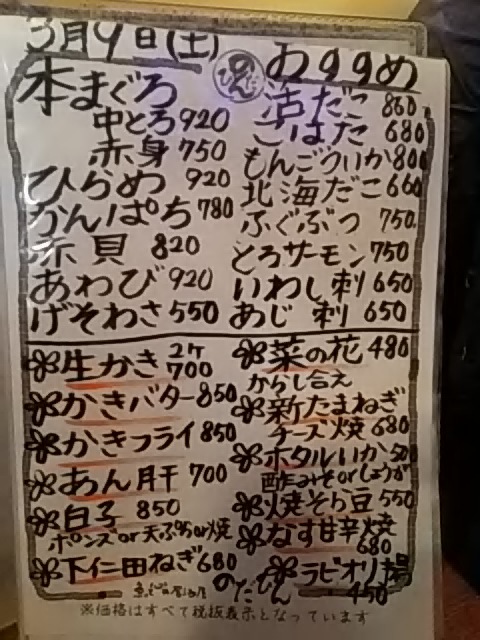 3月9日(土)
おすすめ
本まぐろ
中とろ 920
赤身 750
ひらめ 920
かんぱち 780
赤貝 820
あわび 920
げそわさ 550
活だこ 860
こはだ 680
もんごういか 800
北海だこ 660
ふぐぶつ 750
とろサーモン 750
いわし刺 650
あじ刺 650
生かき 2ヶ 700
かきバター 850
かきフライ 850
あん肝 700
白子 850
ポンズor天ぷらor焼
下仁田ねぎ 680
菜の花 480
からし合え
新たまねぎ
チーズ焼 680
ホタルいか
酢みそorしょうが
焼そら豆 550
なす甘辛焼
680
ラビオリ揚
450
※価格はすべて税抜表示となっています